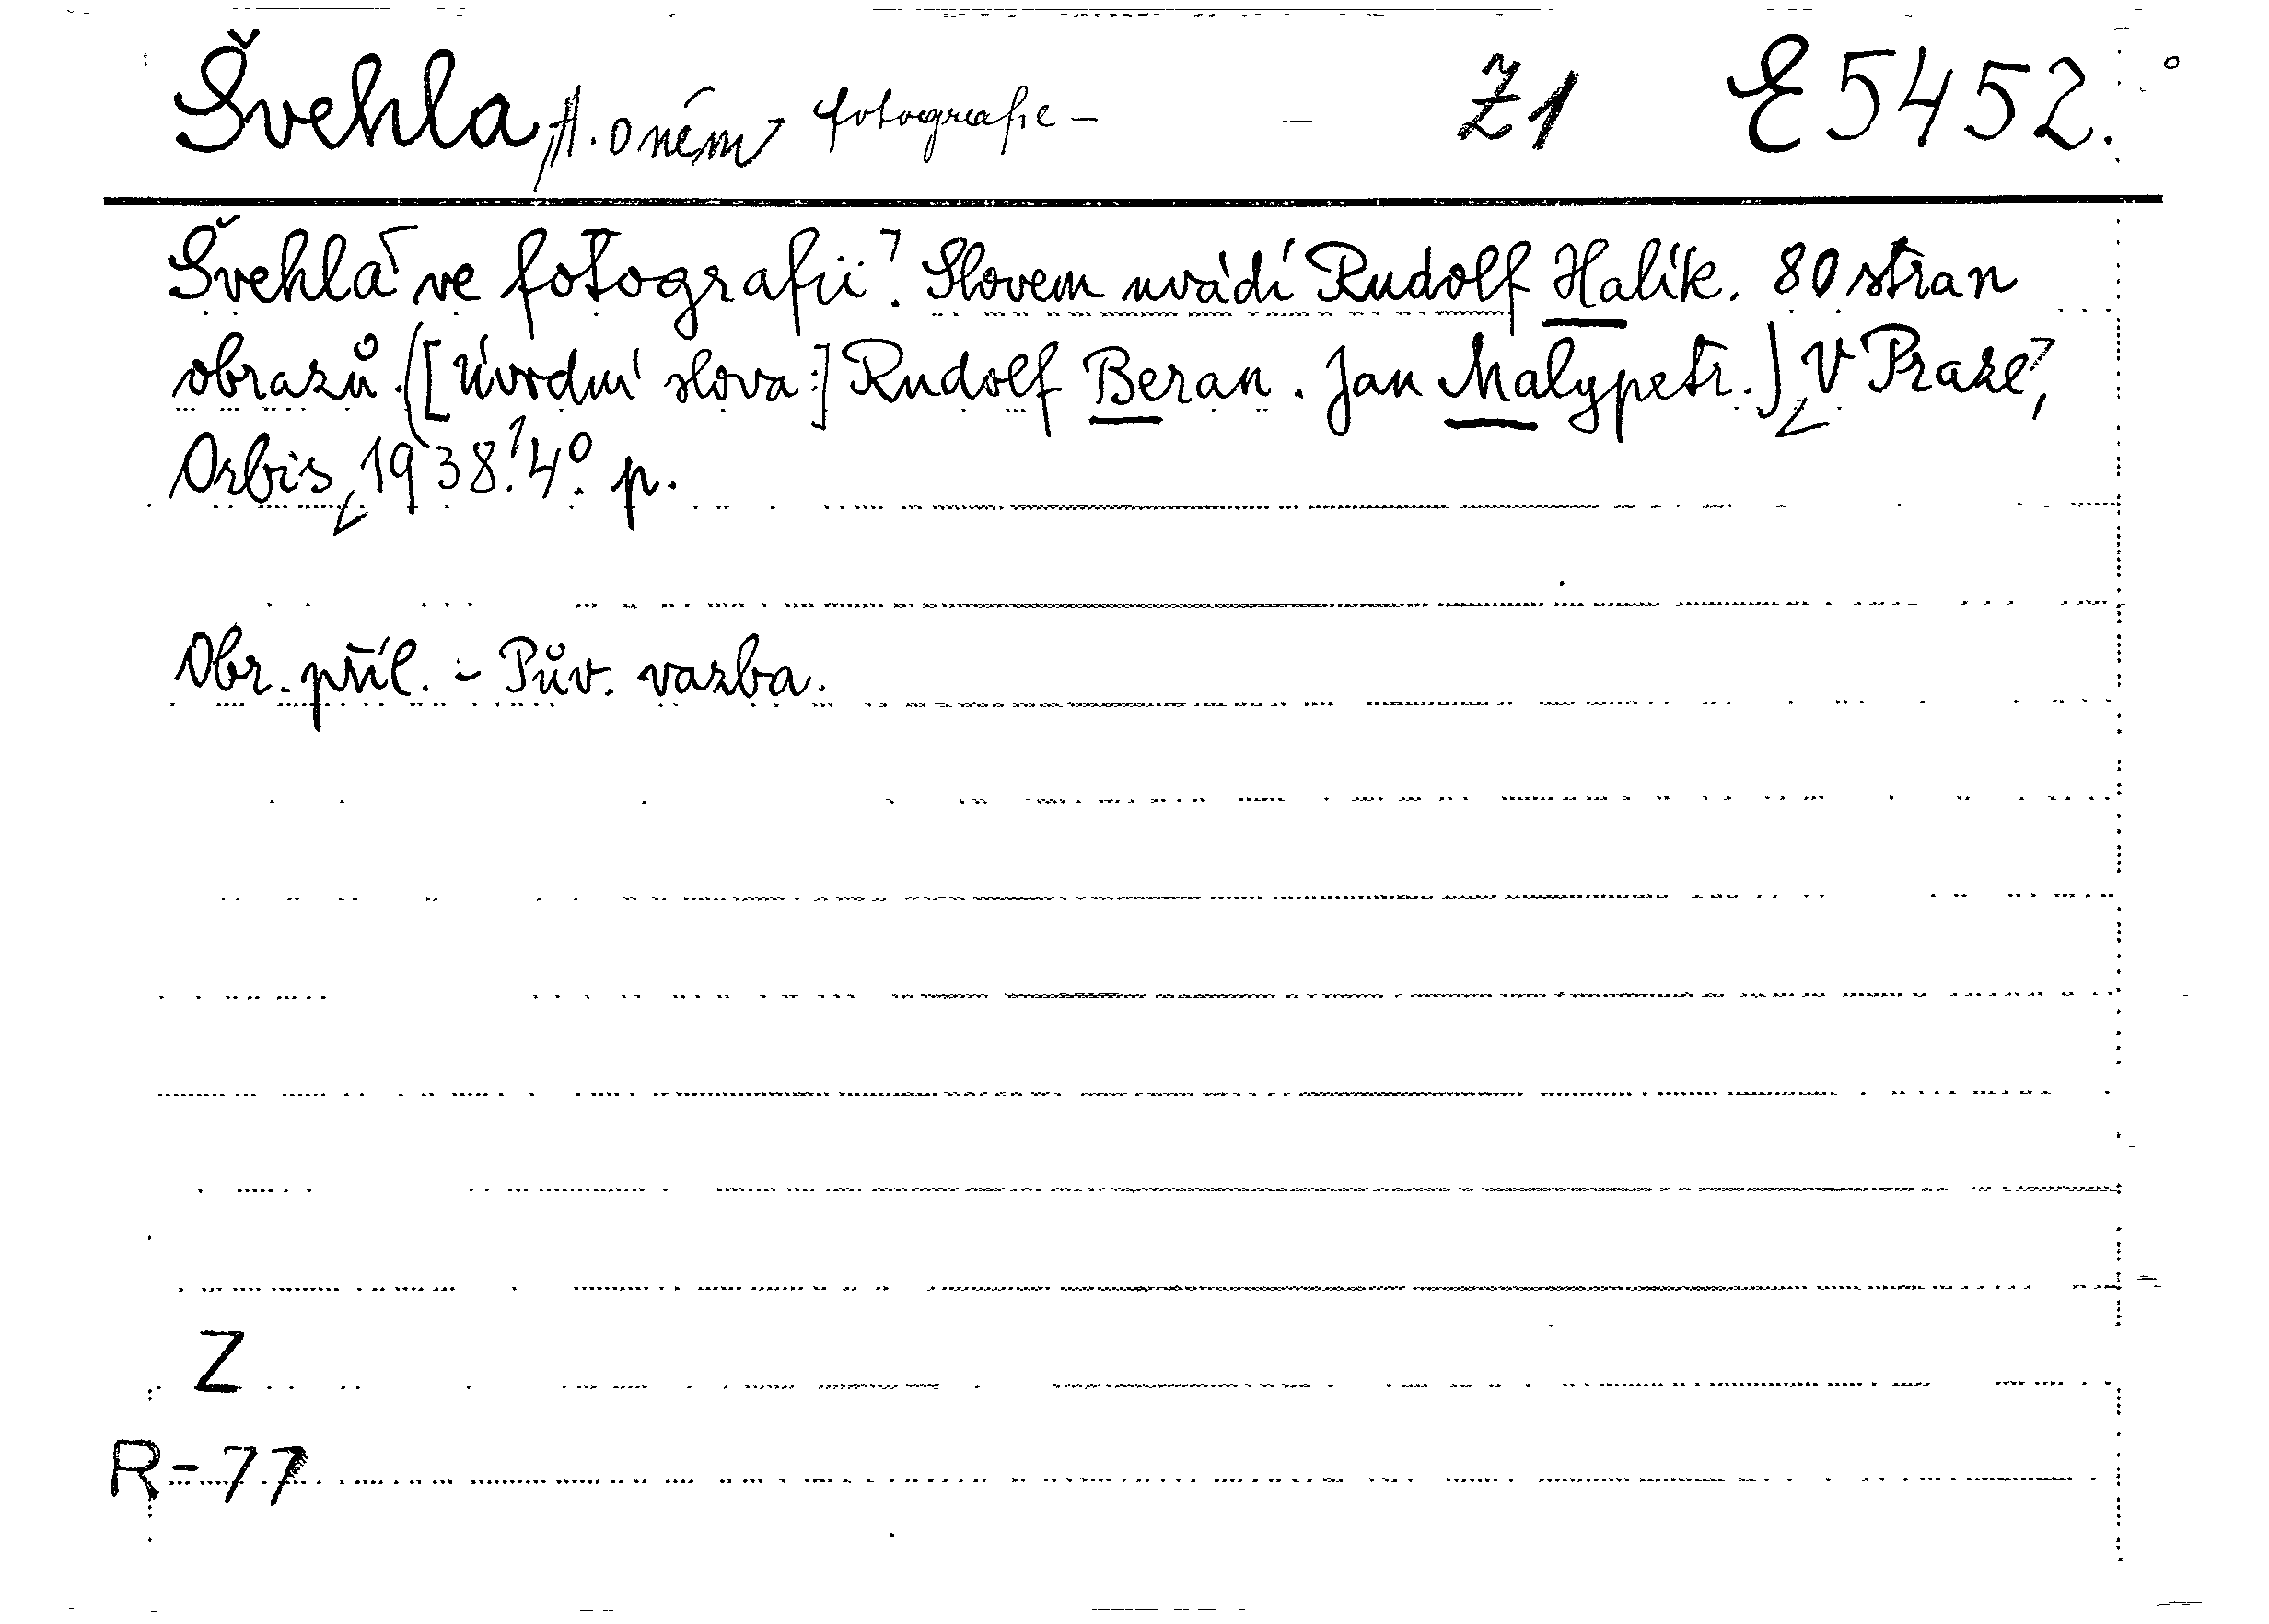 Švehla, A. o něm fotografie – Z1 E 5452.
Švehla ve fotografii. Slovem uvádí Rudolf Halík. 80 stran
obrazů. ([Úvodní slova:] Rudolf Beran. Jan Malypetr.) V Praze,
Orbis, 1938. 4°. p.
Obr. příl. - Pův. vazba.
Z
R-77